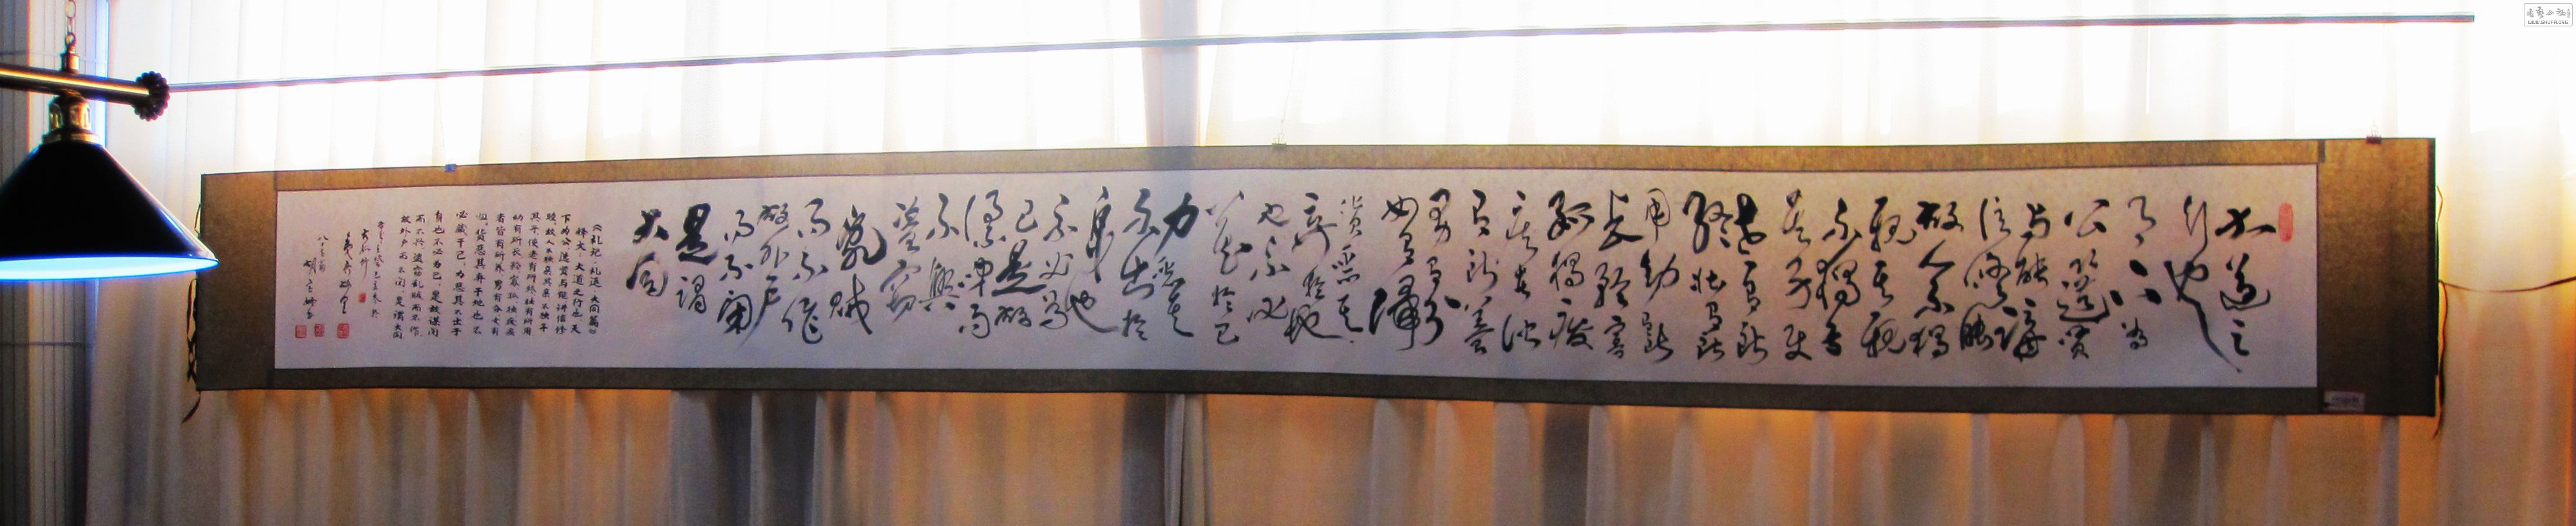 大道之
行也
天下為
公選賢
与能講
信修睦
故人不獨
親其親
不獨子
其子使
老有所
終壯有所
用幼有所
長矜寡
孤獨廢
疾者皆
有所養
男有分
女有歸
貨惡其
棄於地
也不必
藏於己
力惡其
不出於
身也
不必為
己是故
謀閉而
不興
盜竊
亂賊
而不作
故外戶
而不閉
是謂
大同
《礼记·礼运·大同篇》
释文：大道之行也，天
下为公，选贤与能，讲信修
睦，故人不独亲其亲，不独子
其子，使老有所终，壮有所用，
幼有所长，矜寡孤独废疾
者皆有所养。男有分，女有
归，货恶其弃于地也，不
必藏于己，力恶其不出于
身也，不必为己，是故谋闭
而不兴，盗窃乱贼而不作，
故外户而不闭，是谓大同